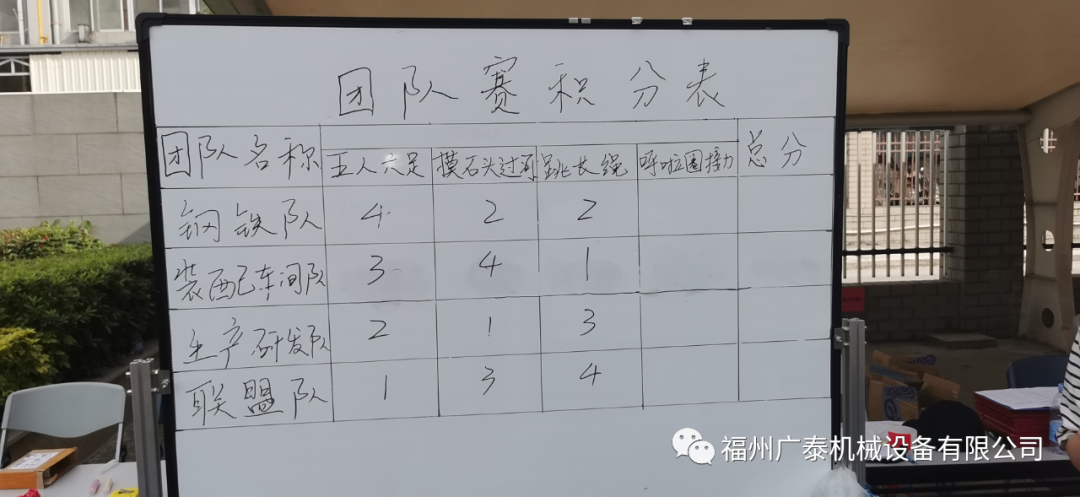 团队赛积分表
团队名称 五人六足 摸石头过河 跳长绳 呼啦圈接力 总分
钢铁队 4 2 2
装配车间队 3 4 1
生产研发队 2 1 3
联盟队 1 3 4
福州广泰机械设备有限公司